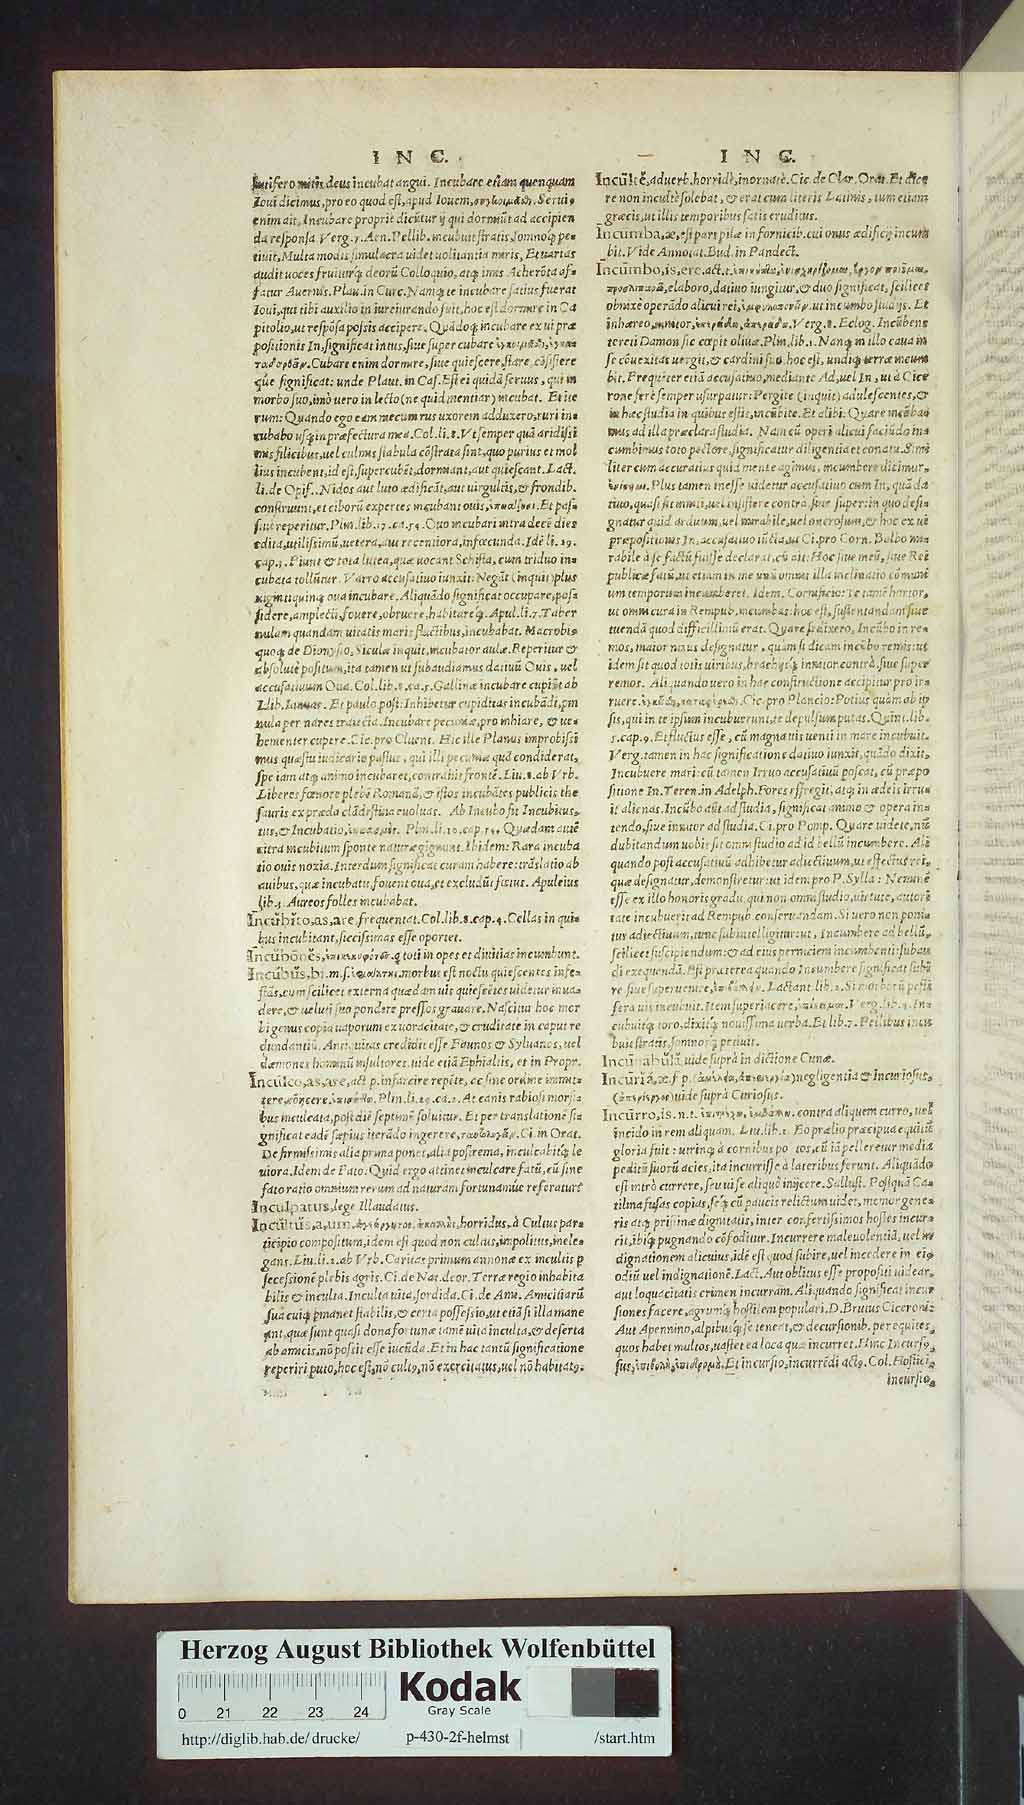 I N C.
mitis deus incubat angui. Incubare etiam quenquam
Ioui dicimus, pro eo quod est, apud Iouem, Serui,
enim ait, Incubare propriè dicūtur ij qui dormiūt ad accipien
da responsa Verg. 7. Aen. Pellib. incubuit stratis, somnosq; pe-
tiuit, Multa modis simulacra uidet uolitantia miris, Et uarias
audit uoces fruiturq; deorū Colloquio, atq; imis Acherōta af-
fatur Auernis. Plau. in Curc. Namq; te incubare satius fuerat
Ioui, qui tibi auxilio in iureiurando fuit, hoc est dormire in Ca
pitolio, ut respōsa possis accipere. Quādoq; incubare ex ui præ
positionis In, significat intus, siue super cubare
Cubare enim dormire, siue quiescere, stare, cōsistere
q́ue significat: unde Plaut. in Cas. Est ei quidā seruus, qui in
morbo suo, imò uero in lecto (ne quid mentiar) incubat. Et ite
rum: Quando ego eam mecum rus uxorem adduxero, ruri in-
cubabo usq; in præfectura mea. Col. li. 8. Vt semper quā aridissi
mis filicibus, uel culmis stabula cōstrata sint, quo purius et mol
lius incubent, id est, supercubēt, dormiant, aut quiescant. Lact.
li. de Opif.. Nidos aut luto ædificāt, aut uirgultis, & frondib.
construunt, et ciborū expertes incubant ouis, Et pas-
siuè reperitur. Plin. lib. 17. ca. 54. Ouo incubari intra decē dies
edita, utilissimū, uetera, aut recentiora, infœcunda. Idē li. 29.
cap. 3. Fiunt & tota lutea, quæ uocant Schista, cum triduo in-
cubata tollūtur. Varro accusatiuo iunxit: Negāt (inquit) plus
uigintiquinq; oua incubare. Aliquādo significat occupare, pos-
sidere, amplecti, fouere, obruere, habitareq;. Apul. li. 7. Taber
nulam quandam uitatis maris fluctibus, incubabat. Macrobi9
quoq; de Dionysio, Siculæ inquit, incubator aulæ. Reperitur &
absolutè positum, ita tamen ut subaudiamus datiuū Ouis, uel
accusatiuum Oua. Col. lib. 8. ca. 5. Gallinæ incubare cupiūt ab
Idib. Ianuar. Et paulo post: Inhibetur cupiditas incubādi, pin
nula per nares traiecta. Incubare pecuniæ, pro inhiare, & ue-
hementer cupere. Cic. pro Cluent. Hic ille Planus improbissi
mus quæstu iudicario pastus, qui illi pecuniæ quā condiderat,
spe iam atq; animo incubaret, contrahit frontē. Liu. 8. ab Vrb.
Liberes fœnore plebē Romanā, & istos incubātes publicis the
sauris ex præda clādestina euoluas. Ab Incubo fit Incubitus,
tus, & Incubatio, Plin. li. 10. cap. 54. Quædam autē
citra incubitum sponte naturæ gignunt. Ibidem: Rara incuba
tio ouis noxia. Interdum significat curam habere: trāslatio ab
auibus, quæ incubatu fouent oua, et excludūt fœtus. Apuleius
lib. 4. Aureos folles incubabat.
Incubito, as, are, frequentat. Col. lib. 8. cap. 4. Cellas in qui-
bus incubitant, siccissimas esse oportet.
Incubōnes, q toti in opes et diuitias incumbunt.
Incubus, bi. m. s. morbus est noctu quiescentes infe-
stās, cum scilicet externa quædam uis quiescētes uidetur inua-
dere, & uelut suo pondere pressos grauare. Nascitur hoc mor
bi genus copia uaporum ex uoracitate, & cruditate in caput re
dundantiū. Antiquitas credidit esse Faunos & Syluanos, uel
dæmones hominū insultores. uide etiā Ephialtis, et in Propr.
Inculco, as, are, act. p. infarcire repēte, ac sine ordine immit-
tere, cōgerere, Plin. li. 29. ca. 2. At canis rabiosi morsi-
bus inculcata, post diē septimū soluitur. Et per translationē si-
gnificat eadē sæpius iterādo ingerere, Ci. in Orat.
De firmissimis alia prima ponet, alia postrema, inculcabitq́; le
uiora. Idem de Fato. Quid ergo attinet inculcare fatū, cū sine
fato ratio omnium rerum ad naturam fortunamúe referatur?
Inculpatus, lege Illaudatus.
Incultus, a, um, horridus, à Cultus par-
ticipio compositum, idem est quod non cultus, impolitus, inele-
gans. Liu. li. 2. ab Vrb. Caritas primum annonæ ex incultis p
secessionē plebis agris. Ci. de Nat. deor. Terræ regio inhabita
bilis & inculta. Inculta uita, sordida. Ci. de Ami. Amicitiarū
sua cuiq; pmanet stabilis, & certa possessio, ut etiā si illa mane
ant, quæ sunt quasi dona fortunæ tamē uita inculta, & deserta
ab amicis, nō possit esse iucūda. Et in hac tantū significatione
reperiri puto, hoc est, nō cult9, nō exercitatus, uel nō habitat9.
I N C.
Incultè, aduerb. horridè, inornatè. Cic. de Clar. Orat. Et dice
re non incultè solebat, & erat cum literis Latinis, tum etiam
græcis, ut illis temporibus satis eruditus.
Incumba, æ, est pars pilæ in fornicib. cui onus ædificij incum
bit. Vide Annotat. Bud. in Pandect.
Incumbo, is, ere, act. t.
elaboro, datiuo iungitur, & duo significat, scilicet
obnixè operādo alicui rei, ut incumbo studijs. Et
inhæreo, innitor, Verg. 8. Eclog. Incūbens
tereti Damon sic cœpit oliuæ. Plin. lib. 2. Nanq; in illo caua in
se cōuexitas uergit, & cardini suo hoc est, undiq; terræ incum
bit. Frequēter etiā accusatiuo, mediante Ad, uel In, ut à Cice
rone ferè semper usurpatur: Pergite (inquit) adulescentes, &
in hæc studia in quibus estis, incūbite. Et alibi: Quare incūba
mus ad illa præclara studia. Nam cū operi alicui faciūdo in-
cumbimus toto pectore, significatur diligentia et conatu. Simi
liter cum accuratius quid mente agimus, incumbere dicimur,
Plus tamen inesse uidetur accusatiuo cum In, quā da
tiuo, quasi sit inniti, uel insistere contrà, siue super: in quo desi-
gnatur quid arduum, uel mirabile, uel onerosum, & hoc ex ui
præpositionis In, accusatiuo iūcta, ut Ci. pro Corn. Balbo mi-
rabile à se factū fuisse declarat, cū ait: Hoc siue meū, siue Rei
publicæ fatū, ut etiam in me unū omnis illa inclinatio cōmuni
um temporum incumberet. Idem. Cornificio: Te tamē hortor,
ut omni cura in Rempub. incumbas: hoc est, sustentandam siue
tuendā quod difficillimū erat. Quare si dixero, Incūbo in re-
mos, maior nixus designatur, quàm si dicam incūbo remis: ut
idem sit quod totis uiribus, brachijsq; innitor contrà, siue super
remos. Aliquando uero in hac constructione accipitur pro ir-
ruere. Cic. pro Plancio: Potius quàm ab ip
sis, qui in te ipsum incubuerunt, te depulsum putas. Quint. lib.
5. cap. 9. Et fluctus esse, cū magna uis uenti in mare incubuit.
Verg. tamen in hac significatione datiuo iunxit, quādo dixit,
Incubuere mari: cū tamen Irruo accusatiuū poscat, cū præpo
sitione In. Teren. in Adelph. Fores effregit, atq; in ædeis irru-
it alienas. Incūbo aūt ad studia, significat animo & opera in-
tendo, siue innitor ad studia. Ci. pro Pomp. Quare uidete, nū
dubitandum uobis sit omni studio ad id bellū incumbere. Ali
quando post accusatiuū adhibetur adiectiuum, ut effectus rei,
quæ designatur, demonstretur: ut idem pro P. Sylla: Neminē
esse ex illo honoris gradu, qui non omni studio, uirtute, autori
tate incubuerit ad Rempub. conseruandam. Si uero non poni-
tur adiectiuum, tunc subintelligitur: ut, Incumbere ad bellū,
scilicet suscipiendum: & ad eius perniciem incumbenti: subau
di exequendā. Est præterea quando Incumbere significat subi
re siue superuenire, Lactant. lib. 2. Si morborū pestis
fera uis incubuit. Item superiacere, Verg. lib. 4. In-
cubuitq; toro, dixitq; nouissima uerba. Et lib. 7. Pellibus incu
buit stratis, somnosq; petiuit.
Incunabula, uide suprà in dictione Cunæ.
Incuria, æ, f. p. negligentia & Incuriosus,
uide suprà Curiosus.
Incurro, is, n. t. contra aliquem curro, uel
incido in rem aliquam. Liu. lib. 2. Eo prælio præcipua equitū
gloria fuit: utrinq; à cornibus po tos, cū iā pelleretur media
peditū suorū acies, ita incurrisse à lateribus ferunt. Aliquādo
est intrò currere, seu uise aliquò inijcere. Sallust. Postquā Ca-
tilina fusas copias, seq́; cū paucis relictum uidet, memor gene-
ris atq; pristinæ dignitatis, inter confertissimos hostes incur-
rit, ibiq; pugnando cōfoditur. Incurrere maleuolentiā, uel in
dignationem alicuius, idē est quod subire, uel incedere in ei9
odiū uel indignationē. Lact. Aut oblitus esse propositi uidear,
aut loquacitatis crimen incurram. Aliquando significat incur
siones facere, agrumq́; hostilem populari. D. Brutus Ciceroni:
Aut Apennino, alpibusq́; se teneat, & decursionib. per equites,
quos habet multos, uastet ea loca quæ incurret. Hinc Incurs9,
sus, Et incursio, incurrēdi act9. Col. Hostici,
incursio,
Herzog August Bibliothek Wolfenbüttel
Kodak
Gray Scale
0 21 22 23 24
http://diglib.hab.de/drucke/ p-430-2f-helmst /start.htm